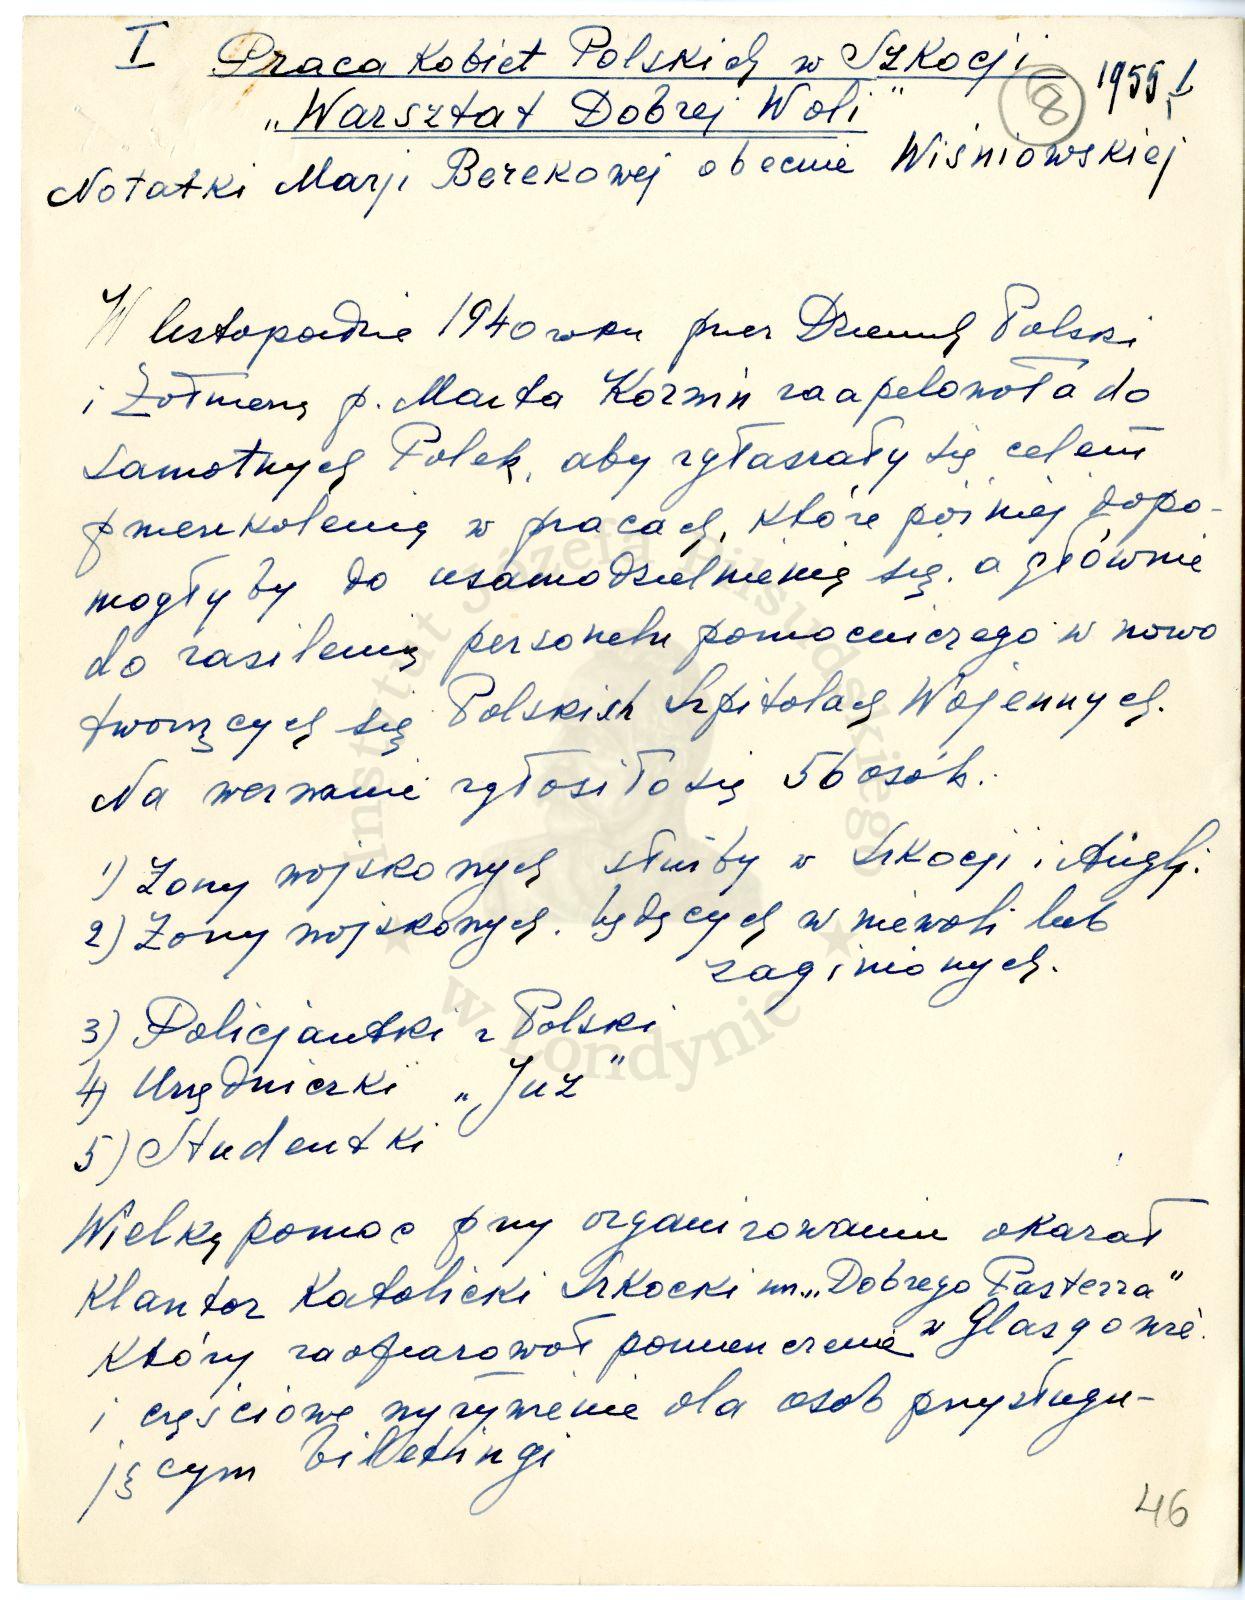 I Praca Kobiet Polskich w Szkocji
"Warsztat Dobrej Woli"
8 1955 I
Notatki Marji Berekowej obecnie Wiśniowskiej
W listopadzie 1940 roku przez Dziennik Polski
i Żołnierza p. Marta Korwin zaapelowała do
samotnych Polek, aby zgłaszały się celem
przeszkolenia w pracach, które później dopo-
mogły by do usamodzielnienia się, a głównie
do zasilenia personelu pomocniczego w nowo
tworzących się Polskich Szpitalach Wojennych.
Na wezwanie zgłosiło się 56 osób.
1) Żony wojskowych służby w Szkocji i Anglji.
2) Żony wojskowych będących w niewoli lub
zaginionych.
3) Policjantki z Polski
4) Urzędniczki "Juz"
5) Studentki
Wielką pomoc przy organizowaniu okazał
Klasztor Katolicki Szkocki "Dobrego Pasterza"
w Glasgowie.
Który zaofiarował pomieszczenie
i częściowe wyżywienie dla osob przysługu-
jącym billetingi
46
Instytut Józefa Piłsudskiego
w Londynie